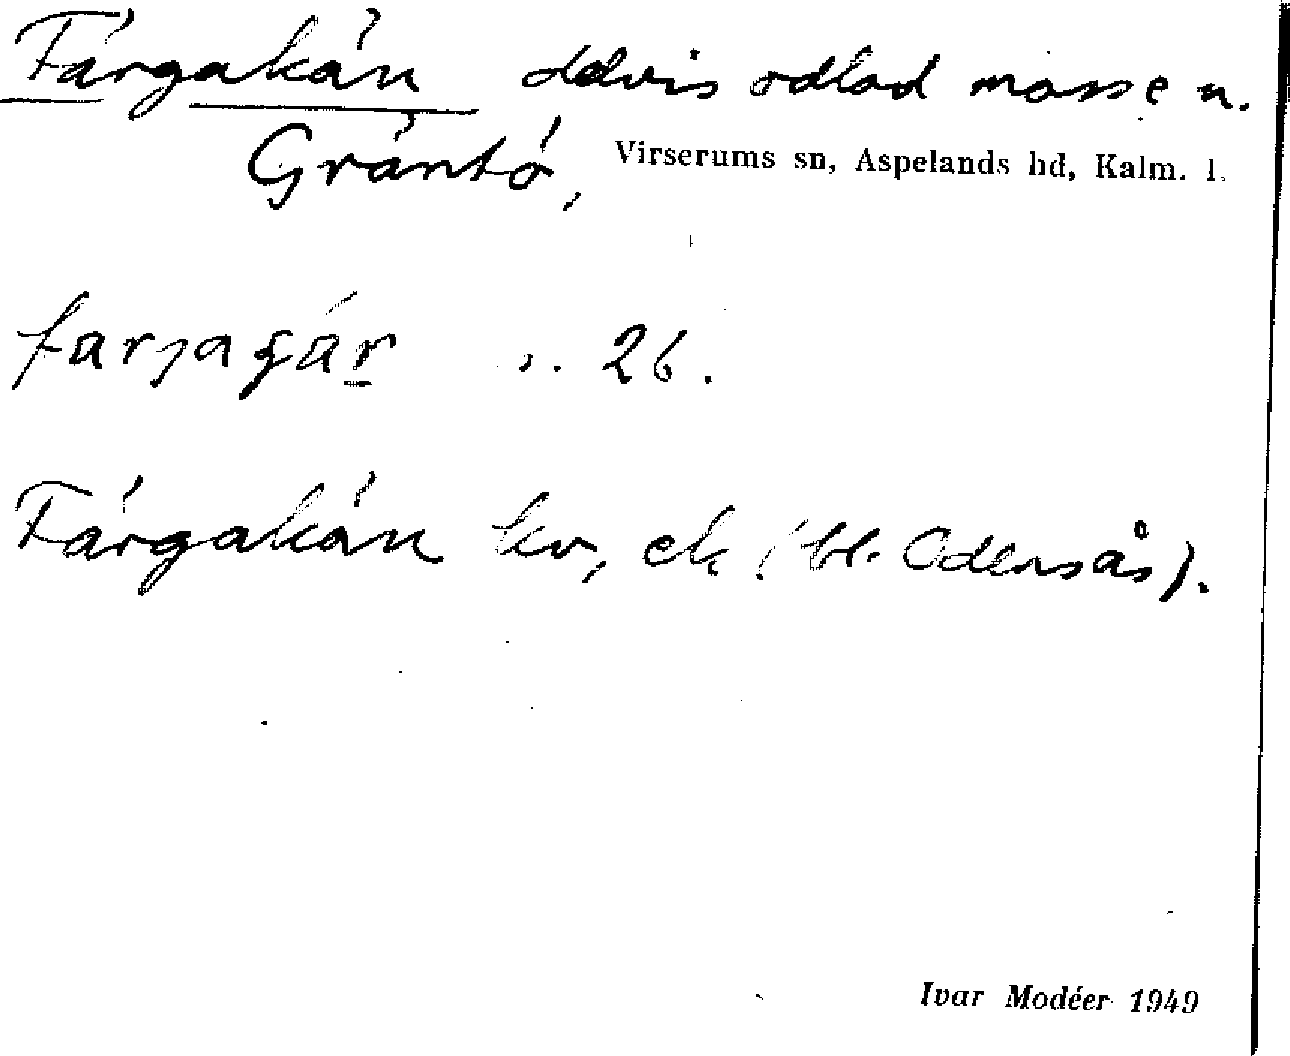 Färgakärr delvis odlad mosse n.
Gräntö, Virserums sn, Aspelands hd, Kalm. l.
26.
Färgakärr kv, ek (bl. Odensås).
Ivar Modéer 1949